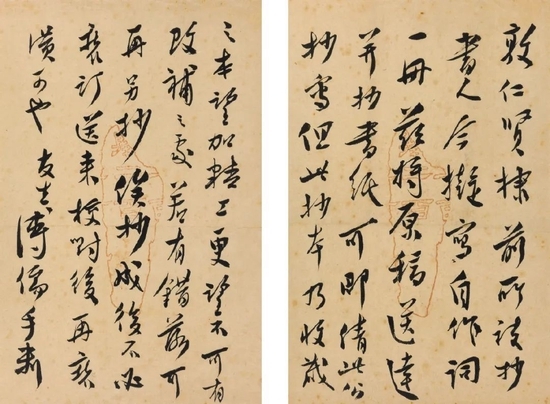 敦仁賢棣 前所談抄
書人 今擬寫自作詞
一冊 茲將原稿送達
并抄書紙 可即倩此公
抄寫 但此抄本乃收藏
之本 望加精工 更望不可有
改補之處 若有錯落可
再另抄 俟抄成後不必
裝訂 送來校對後再裝
潢可也 友生溥儒手